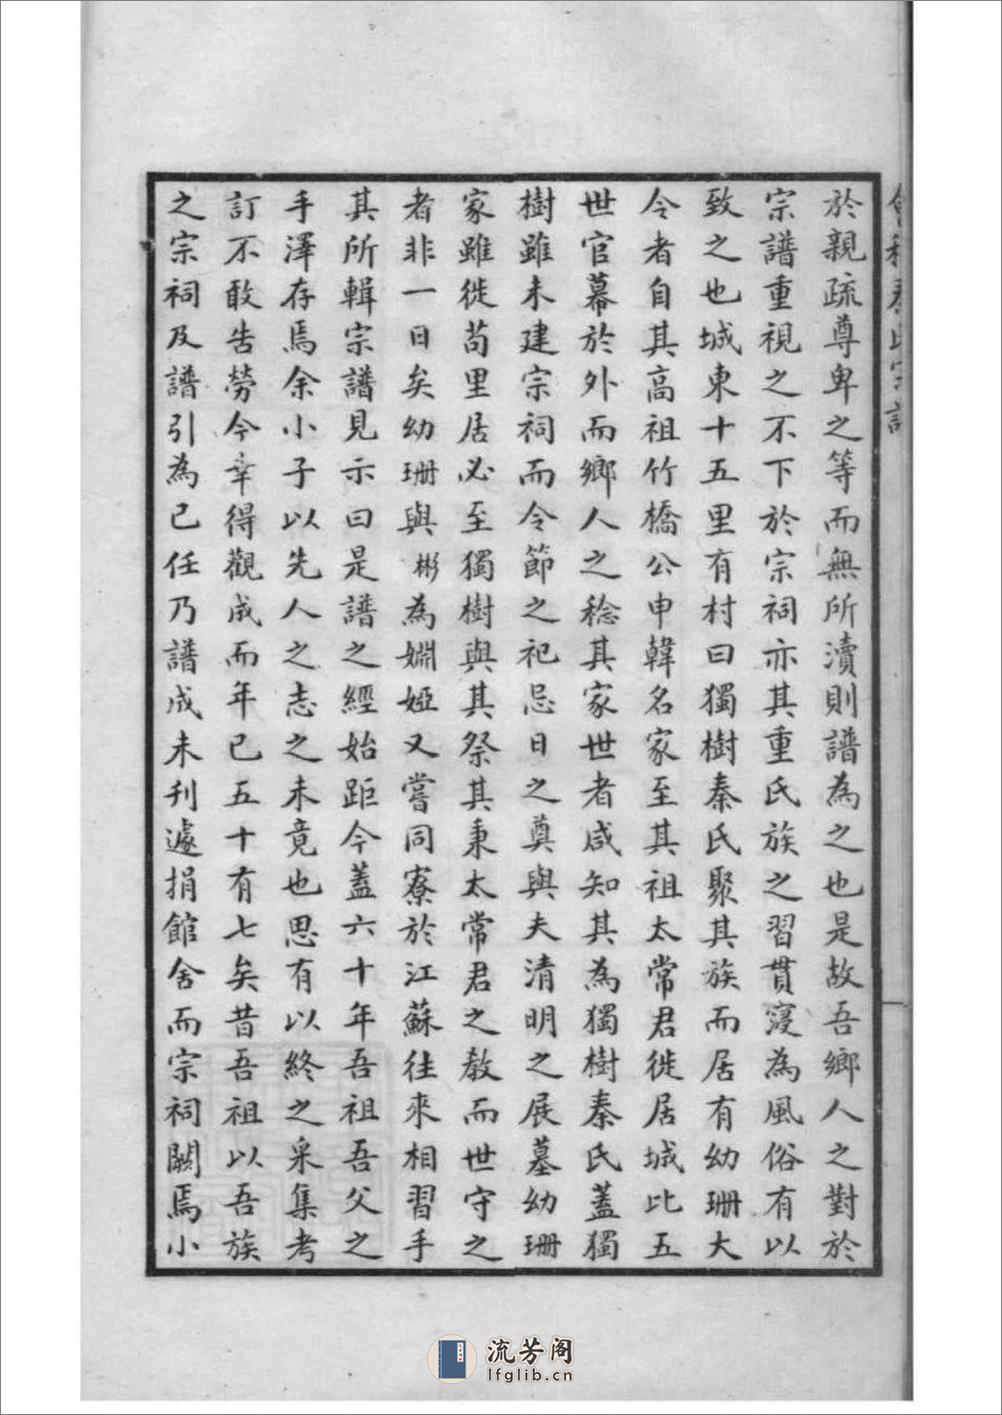 於親疏尊卑之等而無所瀆則譜為之也是故吾鄉人之對於
宗譜重視之不下於宗祠亦其重氏族之習貫寖為風俗有以
致之也城東十五里有村曰獨樹秦氏聚其族而居有幼珊大
令者自其高祖竹橋公申韓名家至其祖太常君徙居城比五
世官幕於外而鄉人之稔其家世者咸知其為獨樹秦氏蓋獨
樹雖未建宗祠而令節之祀忌日之奠與夫清明之展墓幼珊
家雖徙苟里居必至獨樹與其祭其秉太常君之教而世守之
者非一日矣幼珊與彬為姻婭又嘗同寮於江蘇往來相習手
其所輯宗譜見示曰是譜之經始距今蓋六十年吾祖吾父之
手澤存焉余小子以先人之志之未竟也思有以終之采集考
訂不敢告勞今幸得觀成而年已五十有七矣昔吾祖以吾族
之宗祠及譜引為己任乃譜成未刊遽捐館舍而宗祠闕焉小
流芳阁
lfglib.cn